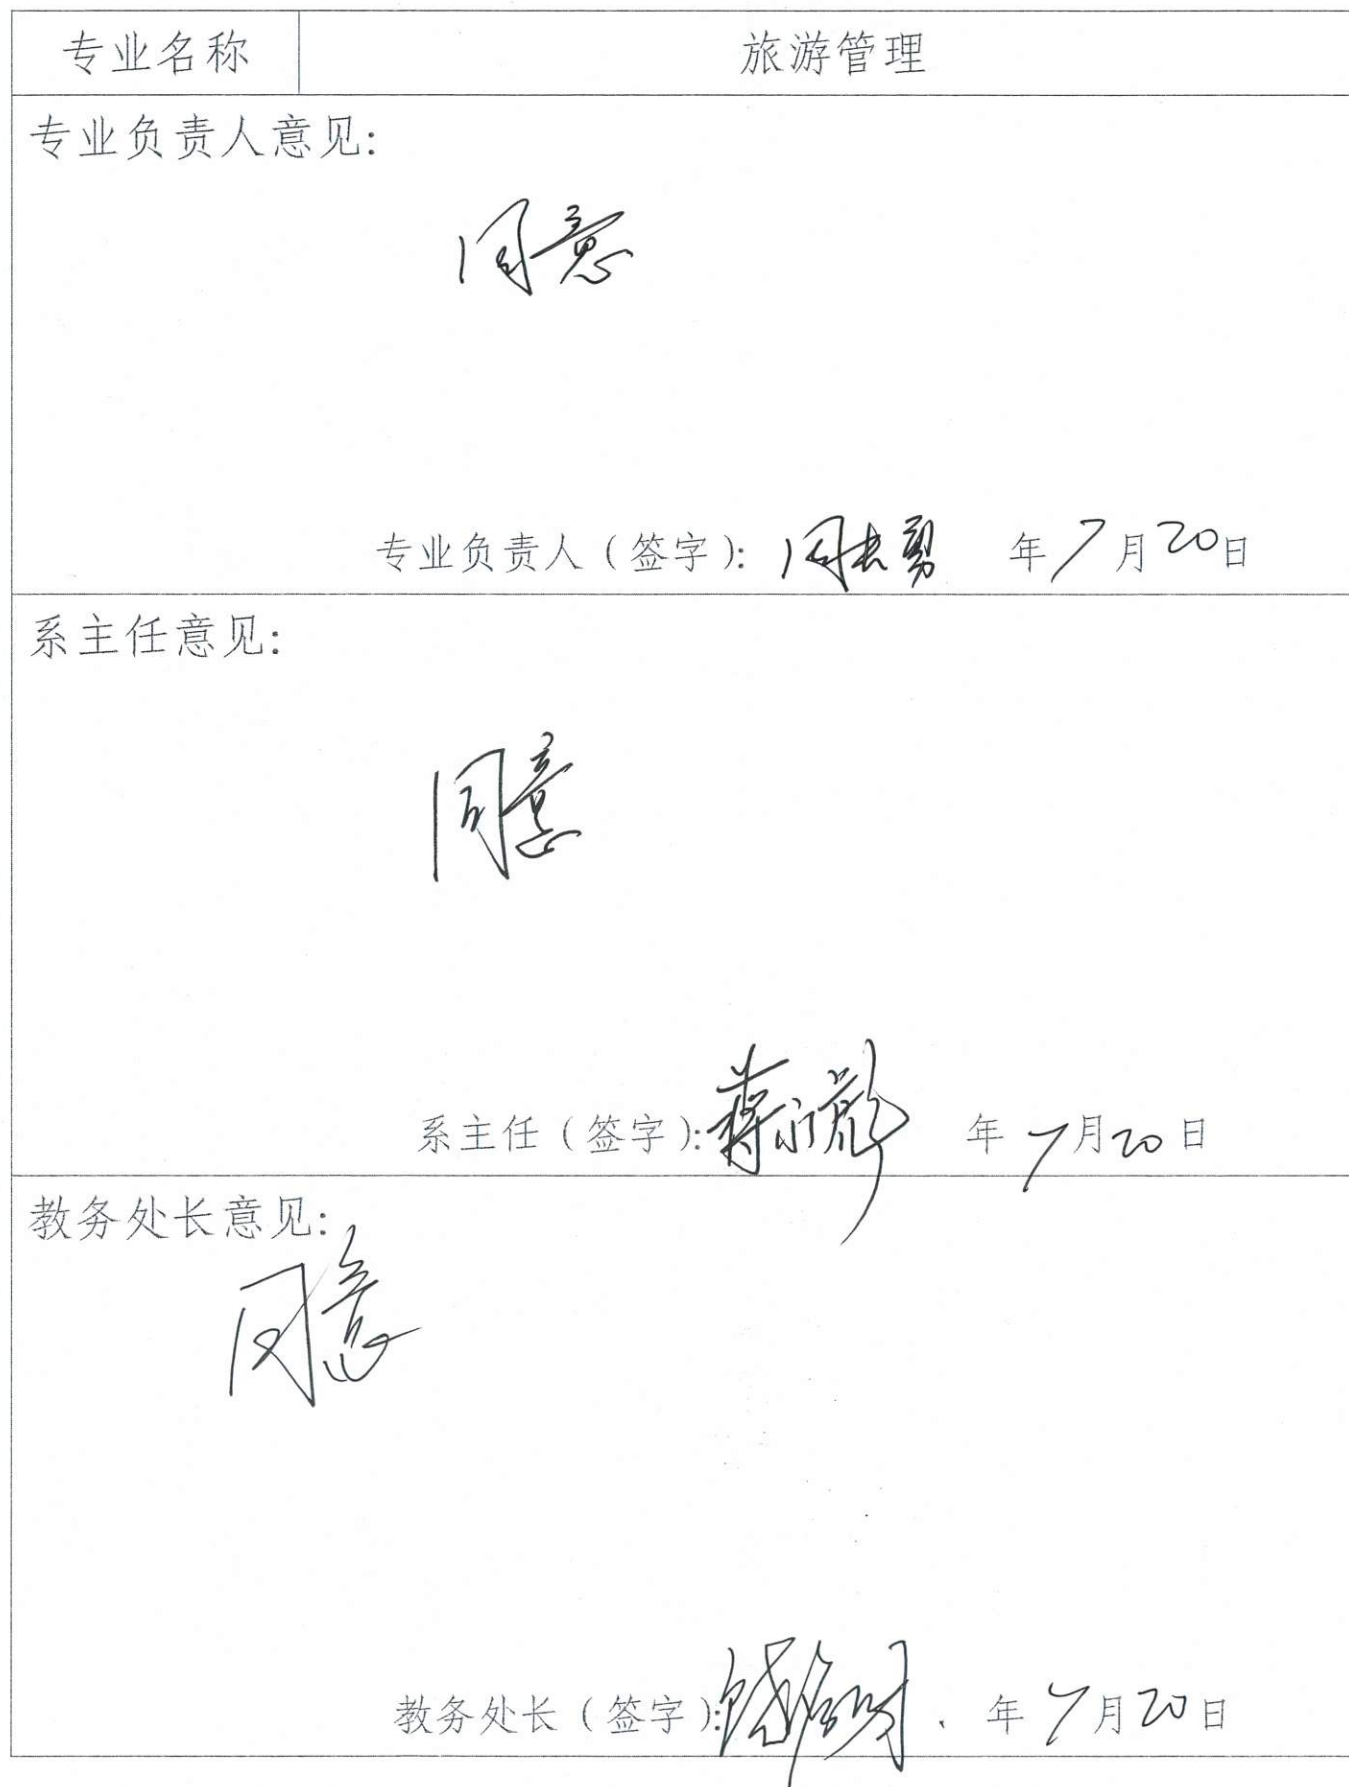 专业名称 旅游管理
专业负责人意见:
同意
专业负责人(签字): 周志勇 年7月20日
系主任意见:
同意
系主任(签字): 蒋 年7月20日
教务处长意见:
同意
教务处长(签字): 年7月20日